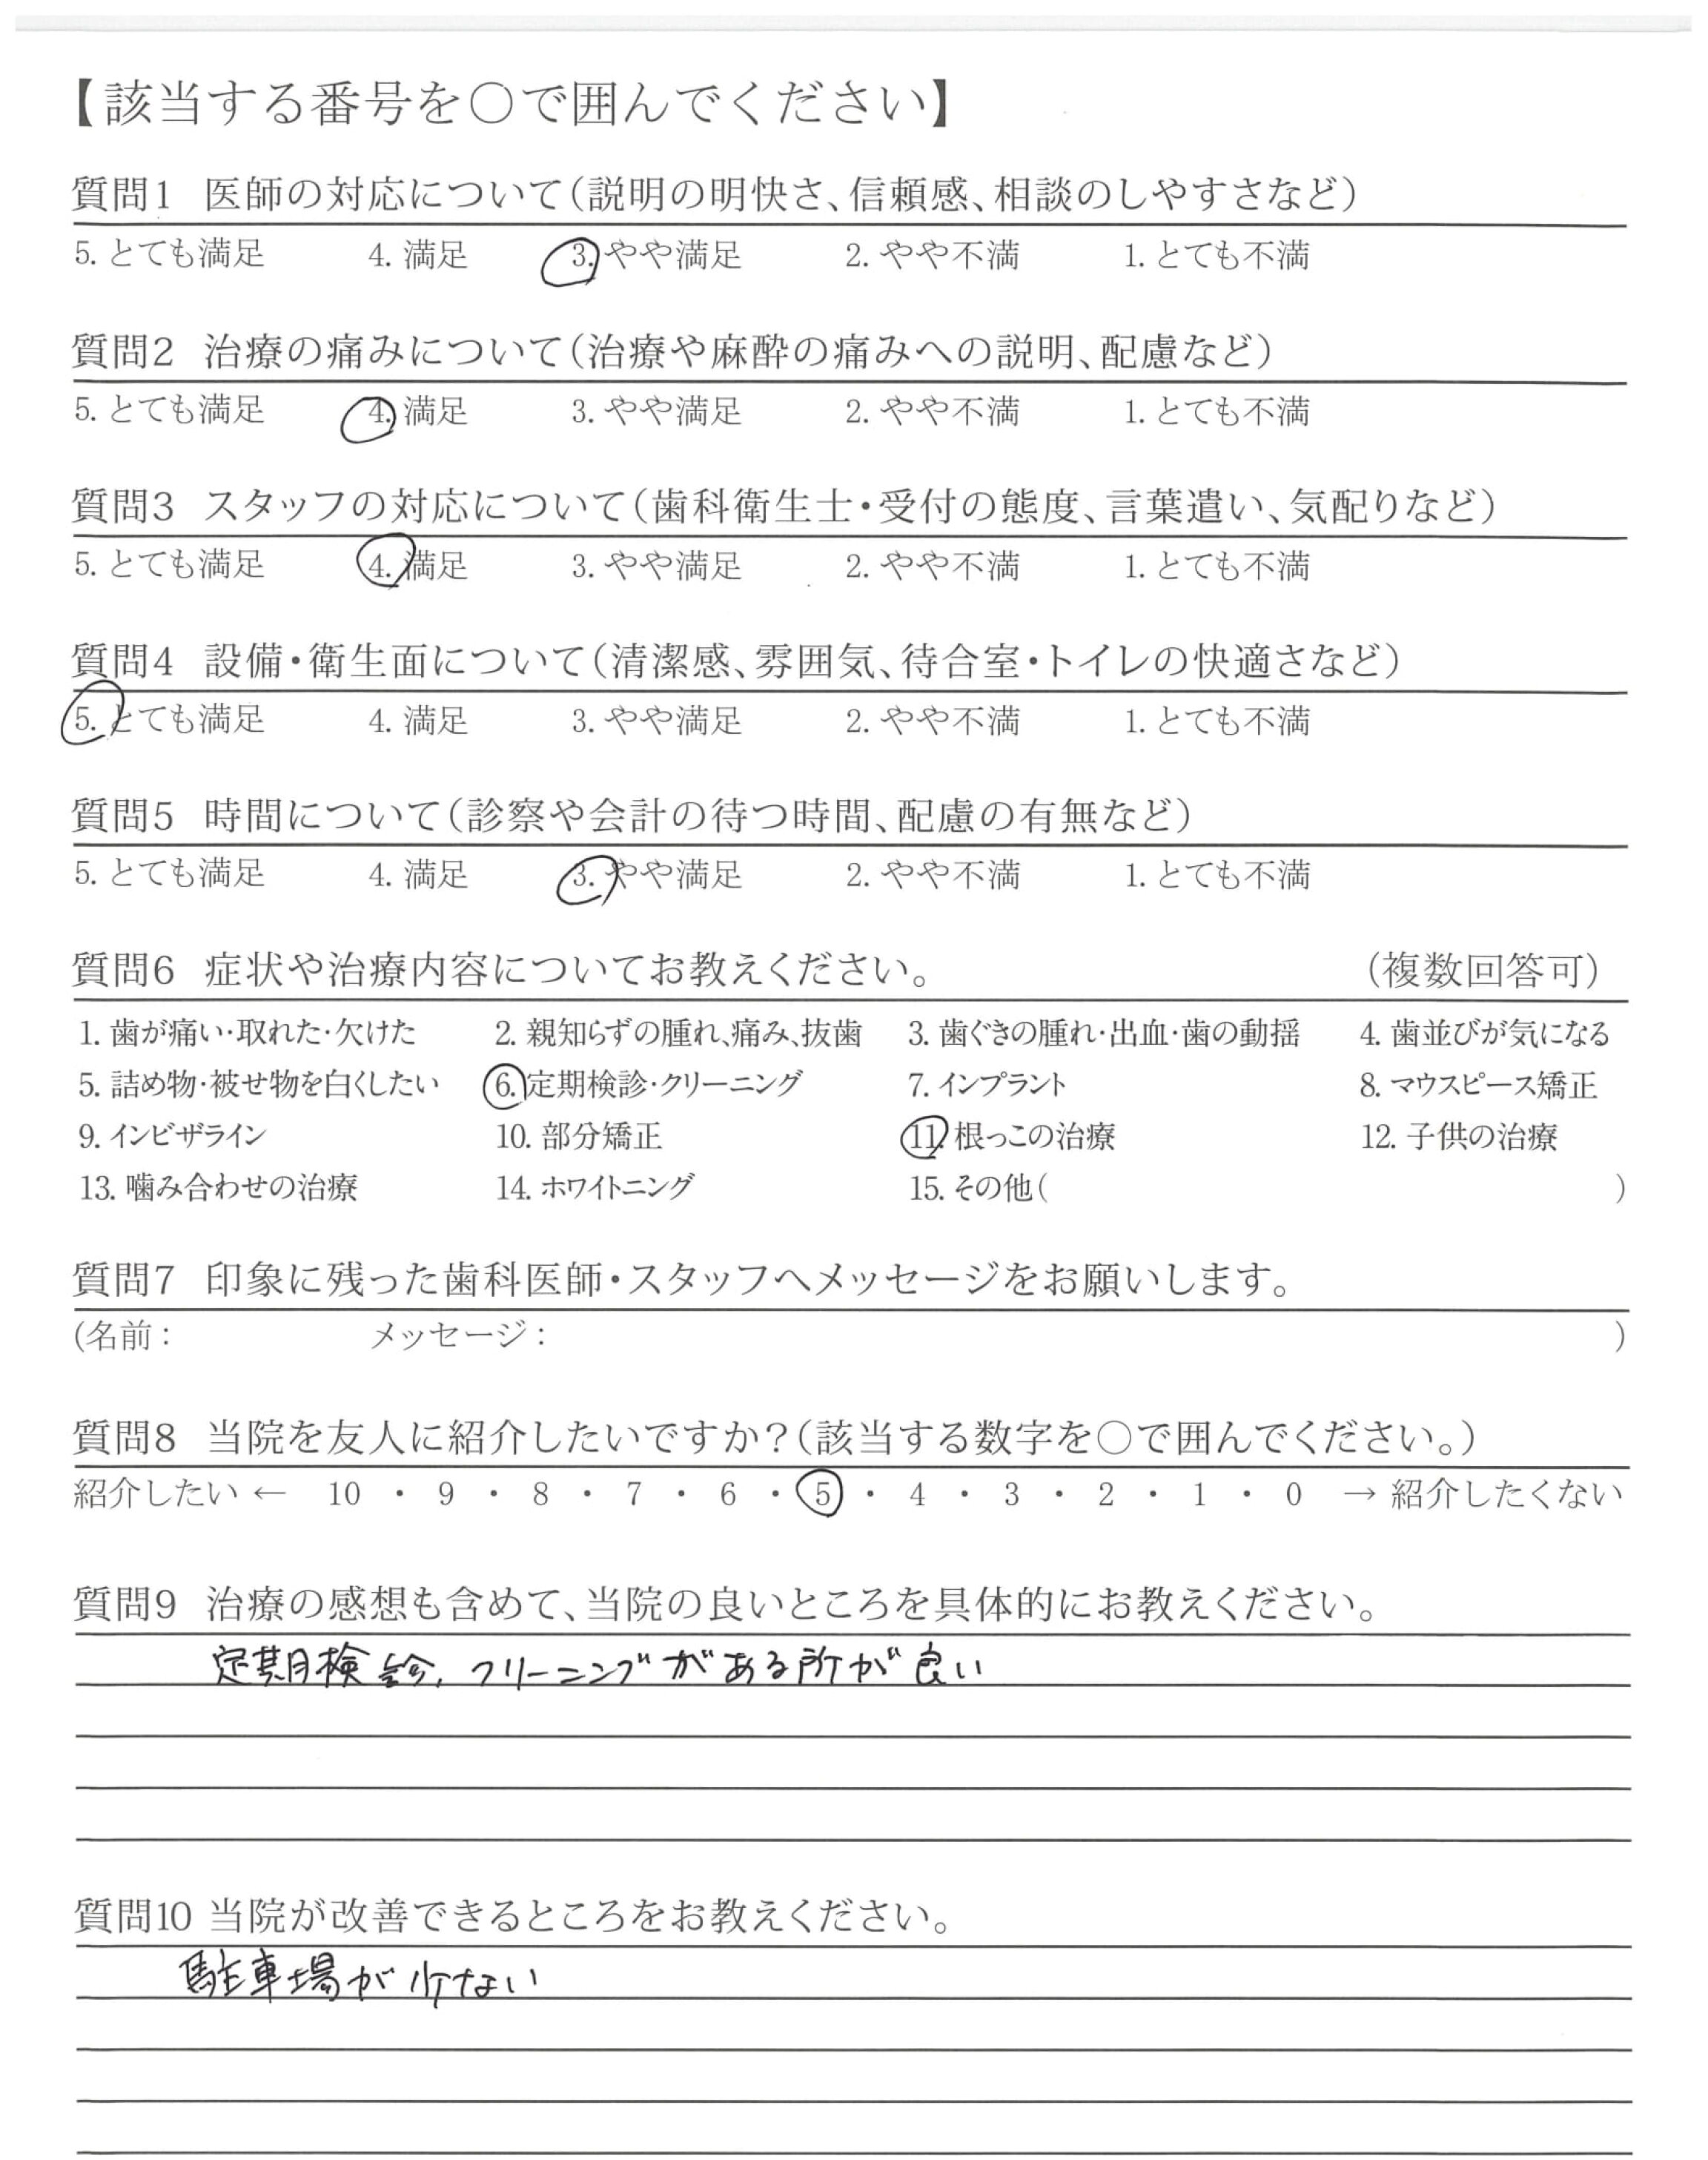 【該当する番号を○で囲んでください】
質問1 医師の対応について(説明の明快さ、信頼感、相談のしやすさなど)
5. とても満足 4. 満足 3. やや満足 2. やや不満 1. とても不満
質問2 治療の痛みについて(治療や麻酔の痛みへの説明、配慮など)
5. とても満足 4. 満足 3. やや満足 2. やや不満 1. とても不満
質問3 スタッフの対応について(歯科衛生士・受付の態度、言葉遣い、気配りなど)
5. とても満足 4. 満足 3. やや満足 2. やや不満 1. とても不満
質問4 設備・衛生面について(清潔感、雰囲気、待合室・トイレの快適さなど)
5. とても満足 4. 満足 3. やや満足 2. やや不満 1. とても不満
質問5 時間について(診察や会計の待つ時間、配慮の有無など)
5. とても満足 4. 満足 3. やや満足 2. やや不満 1. とても不満
質問6 症状や治療内容についてお教えください。 (複数回答可)
1. 歯が痛い・取れた・欠けた 2. 親知らずの腫れ、痛み、抜歯 3. 歯ぐきの腫れ・出血・歯の動揺 4. 歯並びが気になる
5. 詰め物・被せ物を白くしたい 6. 定期検診・クリーニング 7. インプラント 8. マウスピース矯正
9. インビザライン 10. 部分矯正 11. 根っこの治療 12. 子供の治療
13. 噛み合わせの治療 14. ホワイトニング 15. その他( )
質問7 印象に残った歯科医師・スタッフへメッセージをお願いします。
(名前: メッセージ: )
質問8 当院を友人に紹介したいですか?(該当する数字を○で囲んでください。)
紹介したい ← 10 ・ 9 ・ 8 ・ 7 ・ 6 ・ 5 ・ 4 ・ 3 ・ 2 ・ 1 ・ 0 → 紹介したくない
質問9 治療の感想も含めて、当院の良いところを具体的にお教えください。
定期検診、クリーニングがある所が良い
質問10 当院が改善できるところをお教えください。
駐車場が少ない